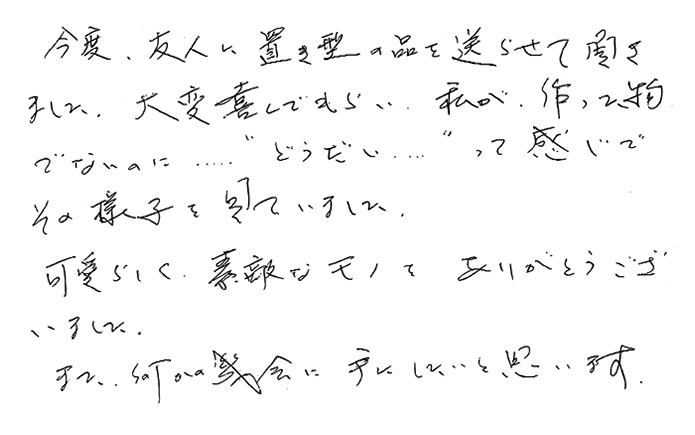 今度、友人に置き型の品を送らせて頂き
ました。大変喜んでもらい、私が、作った物
でないのに……"どうだい…"って感じで
その様子を見ていました。
可愛らしく、素敵なモノを ありがとうござ
いました。
また、何かの機会に手にしたいと思います。